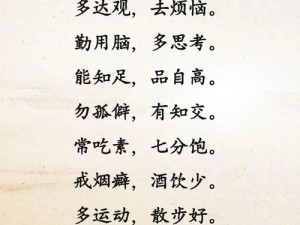 多达观，去烦恼。
勤用脑，多思考。
能知足，品自高。
勿孤僻，有知交。
常吃素，七分饱。
戒烟癖，酒饮少。
多运动，散步好。